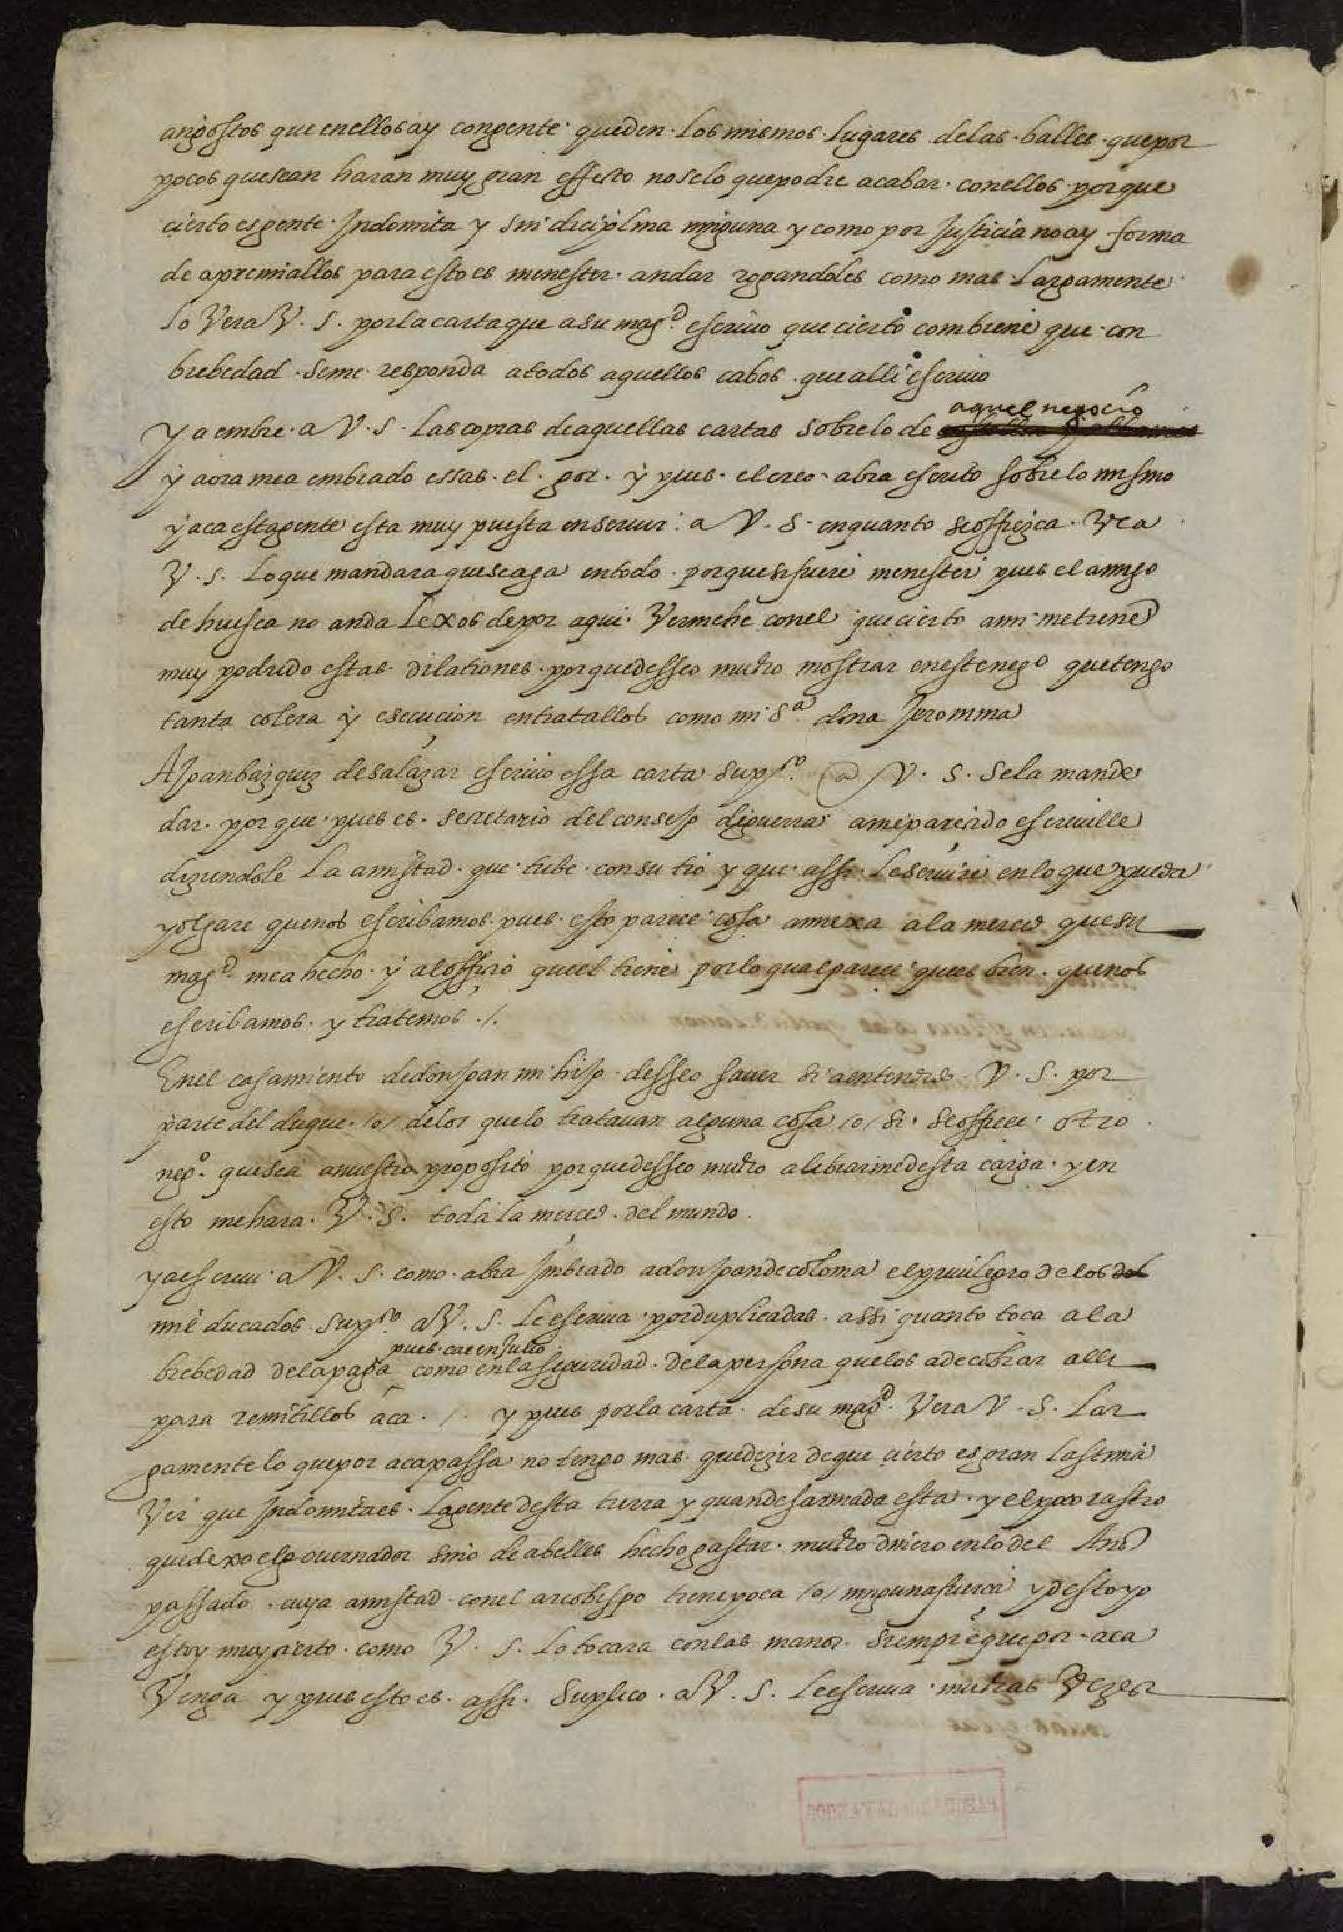 angostos que en ellos ay con gente queden los mismos lugares de las balles que por
pocos que sean haran muy gran effecto no se lo que podre acabar con ellos porque
cierto es gente Indomita y sin diciplina ninguna y como por Justicia no ay forma
de apremiallos para esto es menester andar rogandoles como mas largamente
lo Vera V. S. por la carta que a su magd. escriuo que cierto combiene que con
brebedad se me responda a todos aquellos cabos que alli escriuo
Ya embie a V. S. las copias de aquellas cartas sobre lo de aquel negocio
y aora me a embiado essas el gor. y pues el creo abra escrito sobre lo mismo
y aca esta gente esta muy puesta en seruir a V. S. en quanto se offrezca Vea
V. S. lo que mandara que se aga en todo porque si fuere menester pues el amigo
de huesca no anda lexos de por aqui Verme he con el que cierto a mi me tiene
muy podrido estas dilationes porque desseo mucho mostrar en este nego que tengo
tanta colera y esecucion en tratallos como mi sa. dona Jeronima
A Joan bazquez de salazar escriuo essa carta supco. a V. S. se la mande
dar porque pues es secretario del consejo de guerra a me parecido escriuille
diziendole la amistad que tube con su tio y que assi le seruire en lo que pueda
y olgare que nos escribamos pues esto parece cosa annexa a la merced que su
magd. me a hecho y al officio que el tiene por lo qual parece que es bien que nos
escribamos y tratemos ./.
En el casamiento de don Joan mi hijo desseo sauer si a entendido V. S. por
parte del duque /o/ de los que lo tratauan alguna cosa /o/ si se offrece otro
nego. que sea a nuestro proposito porque desseo mucho alibiarme desta carga y en
esto me hara V. S. toda la merced del mundo.
ya escriui a V. S. como abia Imbiado a don Joan de coloma el priuilegio de los dos
mil ducados supco. a V. S. le escriua por duplicadas assi quanto toca a la
pues cae en Julio
brebedad de la paga como en la seguridad de la persona que los a de cobrar alli
para remitillos aca ./. y pues por la carta de su magd. Vera V. S. lar
gamente lo que por aca passa no tengo mas que dezir de que cierto es gran lastima
Ver que Indomita es la gente desta tierra y quan desarmada esta y el poco rastro
que dexo el gouernador sino de abelles hecho gastar mucho dinero en lo del Año
passado cuya amistad con el arcobispo tiene poca /o/ ninguna fuerça y desto yo
estoy muy cierto como V. S. lo tocara con las manos siempre que por aca
Venga y pues esto es assi suplico a V. S. le escriua muchas Vezes